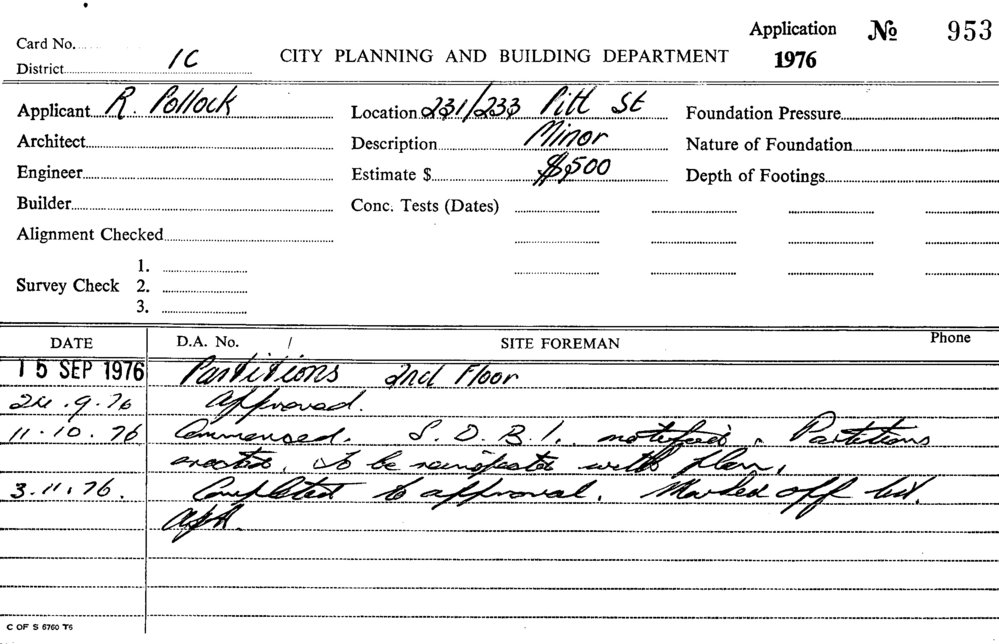 Application № 953
Card No.
1976
District 1C
CITY PLANNING AND BUILDING DEPARTMENT
Applicant R. Pollock
Location 231/233 Pitt St
Foundation Pressure
Architect
Description Minor
Nature of Foundation
Engineer
Estimate $ $500
Depth of Footings
Builder
Conc. Tests (Dates)
Alignment Checked
Survey Check
1.
2.
3.
DATE
D.A. No. /
SITE FOREMAN
Phone
15 SEP 1976 Partitions 2nd Floor
24.9.76 Approved.
11.10.76 Commenced. S.D.B.I. notified. Partitions
erected. To be reinspected with plan.
3.11.76. Completed to approval. Marked off list.
C OF S 6760 T6